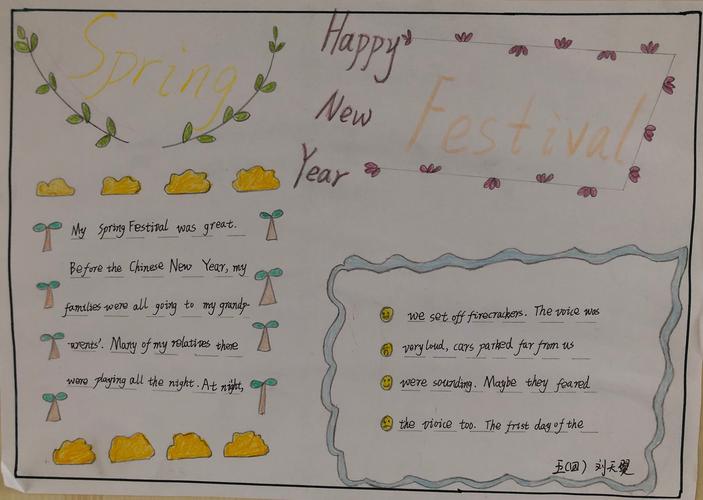 Spring
Happy
New
Year
Festival
My Spring Festival was great.
Before the Chinese New Year, my
families were all going to my grandp-
arents'. Many of my relatives there
were playing all the night. At night,
we set off firecrackers. The voice was
very loud, cars parked far from us
were sounding. Maybe they feared
the vioice too. The frist day of the
五(四) 刘天